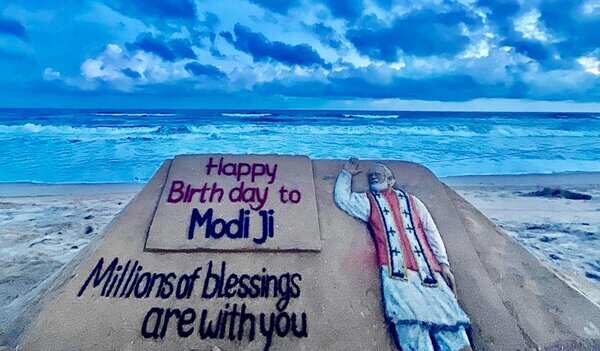 Happy
BirTh day to
Modi Ji
Millions of blessings
are with you